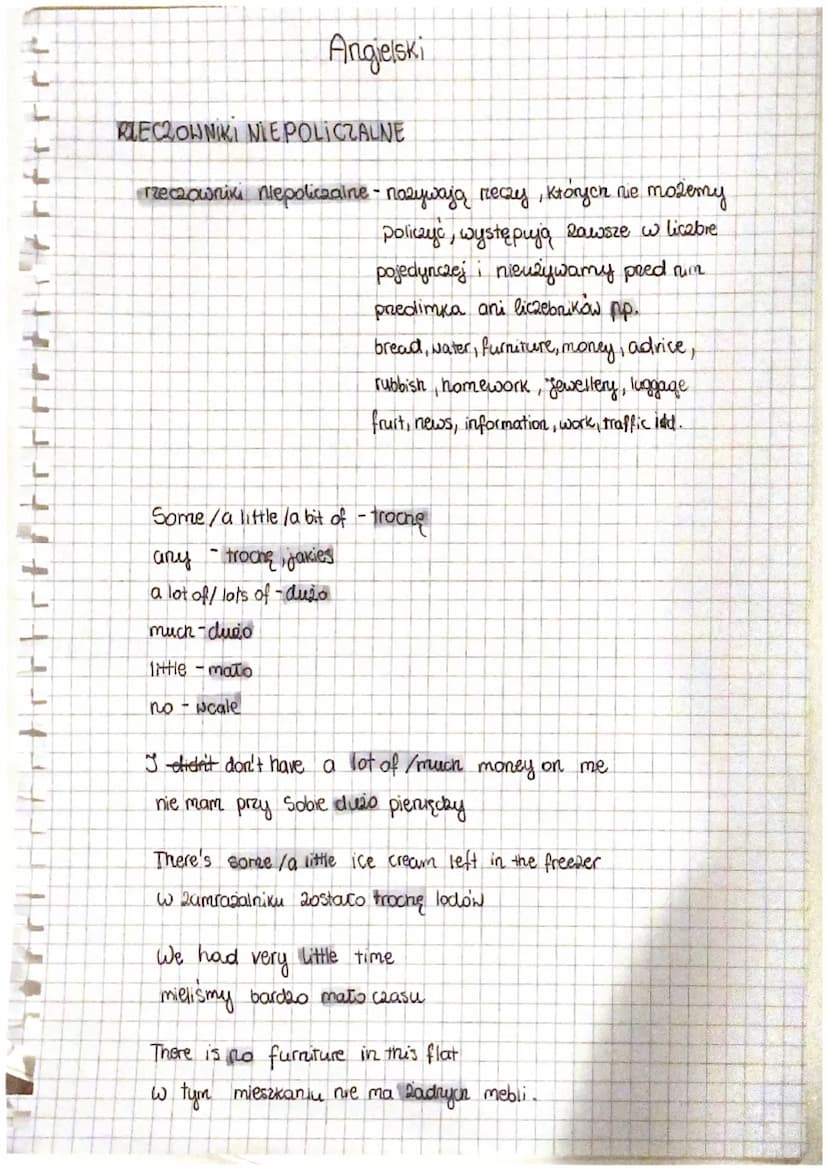 Angielski
RZECZOWNIKI NIEPOLICZALNE
rzeczowniki niepoliczalne - nazywają rzeczy, których nie możemy
policzyć, występują zawsze w liczbie
pojedynczej i nieużywamy przed nim
przedimka ani liczebników np.
bread, water, furniture, money, advice,
rubbish, homework, jewellery, luggage
fruit, news, information, work, traffic itd.
Some/a little/a bit of - trochę
any - trochę, jakieś
a lot of/lots of - dużo
much - dużo
little - mało
no - wcale
I didn't don't have a lot of/much money on me
nie mam przy sobie dużo pieniędzy
There's some/a little ice cream left in the freezer
w zamrażalniku zostało trochę lodów
We had very little time
mieliśmy bardzo mało czasu
There is no furniture in this flat
w tym mieszkaniu nie ma żadnych mebli.